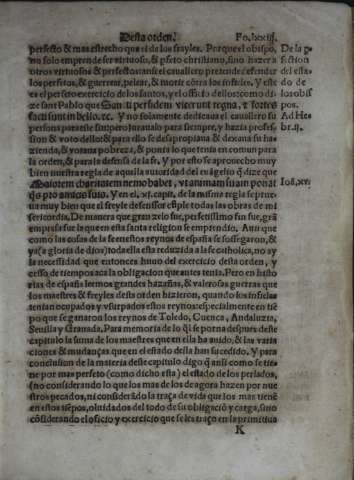 Desta orden. Fo.lxxiij.
perfecto & mas estrecho que el de los freyles. Porque el obispo,
no solo emprende ser virtuoso, & pfeto christiano, sino hazer a
otros virtuosos & pfectos: ansi el cauallero pretende defender
los pfectos, & guerrear, pelear, & morir cōtra los infieles. Y este
es el perfeto exercicio de los santos, y el officio dellos: como di
ze sant Pablo que Sancti per fidem vicerunt regna, & fortes
facti sunt in bello. &c. Y no solamente dedica a el cauallero su
persona para este fin, pero
sion & voto dello: & para ello se desapropia & dexa su ha
zienda, & vota pobreza, & pone lo que tenia en comun para
la orden, & para la defensa de la fe. Y por esto se aprouecho muy
bien nuestra regla de aquella autoridad del euāgelio q̄ dize que
Maiorem charitatem nemo habet, vt animam suam ponat
q̄s pro amicis suis. Y en el .xj. capit. de la misma regla se prue
ua muy bien que el freyle defensor cūple todas las obras de mi
sericordia. De manera que gran zelo fue, perfetissimo fin fue, grā
empresa fue la que en esta santa religion se emprendio. Aun que
como las cosas de la fe en estos reynos de españa se sossegaron, &
ya (a gloria de dios) toda ella esta reduzida a la fe catholica, no ay
la necessidad que entonces huuo del exercicio desta orden, y
cesso, de tiempos aca la obligacion que antes tenia. Pero en histo
rias de españa leemos grandes hazañas, & valerosas guerras que
los maestres & freyles desta orden hizieron, quando los infieles
tenian ocupados y vsurpados estos reynos: especialmente en tiē
po que se ganaron los reynos de Toledo, Cuenca, Andaluzia,
Seuilla y Granada. Para memoria de lo q̄l se porna despues deste
capitulo la suma de los maestres que en ella ha auido: & las varia
ciones & mudanças que en el estado della han sucedido. Y para
conclusion de la materia deste capitulo digo q̄ ansi como se tie
ne por mas perfeto (como dicho esta) el estado de los perlados,
(no considerando lo que los mas de los de agora hazen por nue
stros pecados, ni considerādo la traça de vida que los mas tienē
en estos tiēpos, oluidados del todo de su obligaciō y carga, sino
cōsiderando el oficio y exercicio que se les traço en la primitiua
K
De la p
fection
del esta
do de
los obis
pos.
Ad Heb
br.ij.
Ioā.xv.